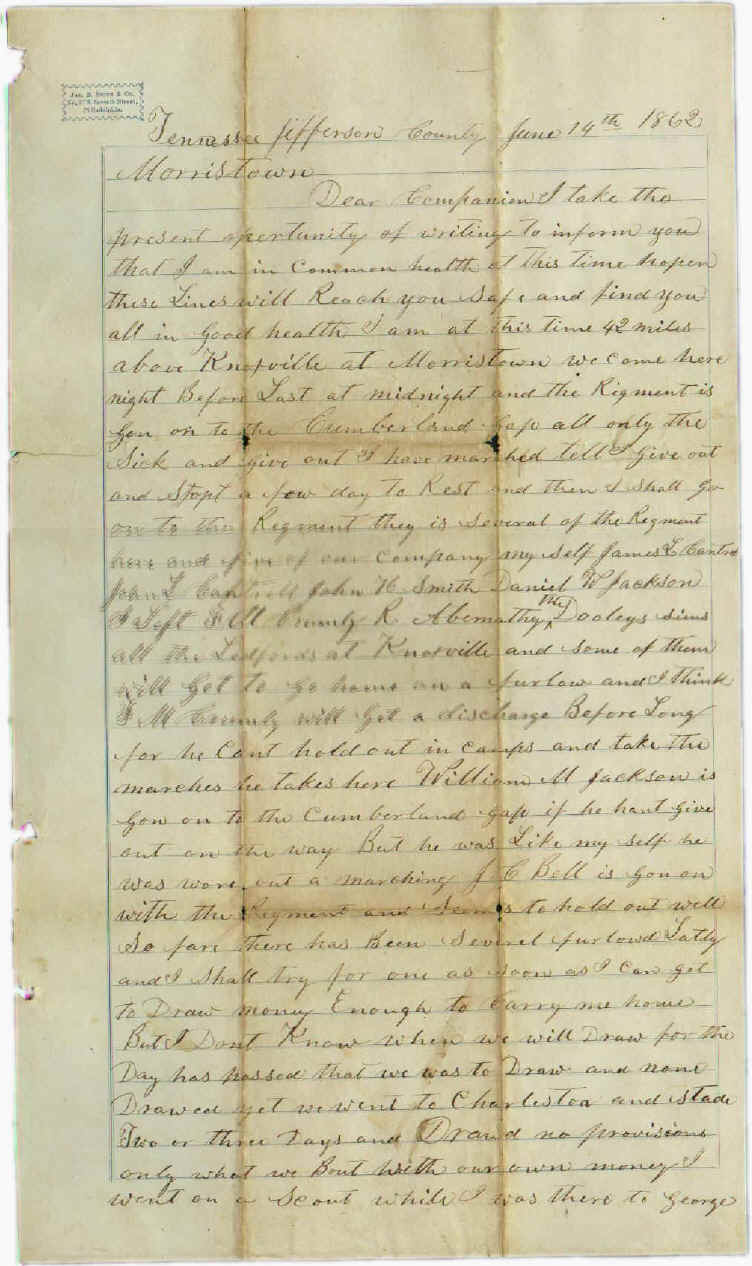 Tennessee Jefferson County June 14th 1862
Morristown
Dear Companion I take the
present opertunity of writing to inform you
that I am in common health at this time hopen
these Lines will Reach you Safe and find you
all in Good health I am at this time 42 miles
above Knoxville at Morristown we come here
night Before Last at midnight and the Rigment is
Gon on to the Cumberland Gap all only the
Sick and give out I have marched tell I give out
and Stopt a few day to Rest and then I shall go
on to the Regment they is several of the Regment
here and five of our company my self James L Cantre
John L Cantrell John H Smith Daniel W Jackson
I Left F M R Abernathy Dooleys sims
all the Ledfords at Knoxville and some of them
will Get to Go home on a furlow and I think
F M will Get a discharge Before Long
for he Cant hold out in camps and take the
marches he takes here William M Jackson is
Gon on to the Cumberland Gap if he hant Give
out on the way But he was Like my self he
was wore out a marching J C Bell is Gon on
with the Regment and Seems to hold out well
So fare there has Been Severel furlowd Latly
and I Shall try for one as soon as I can get
to Draw money Enough to Carry me home
But I Dont Know when we will Draw for the
Day has passed that we was to Draw and none
Drawed yet we went to Charleston and stade
Two or three Days and Drawd no provisions
only what we Bout with our own money I
went on a Scout while I was there to George